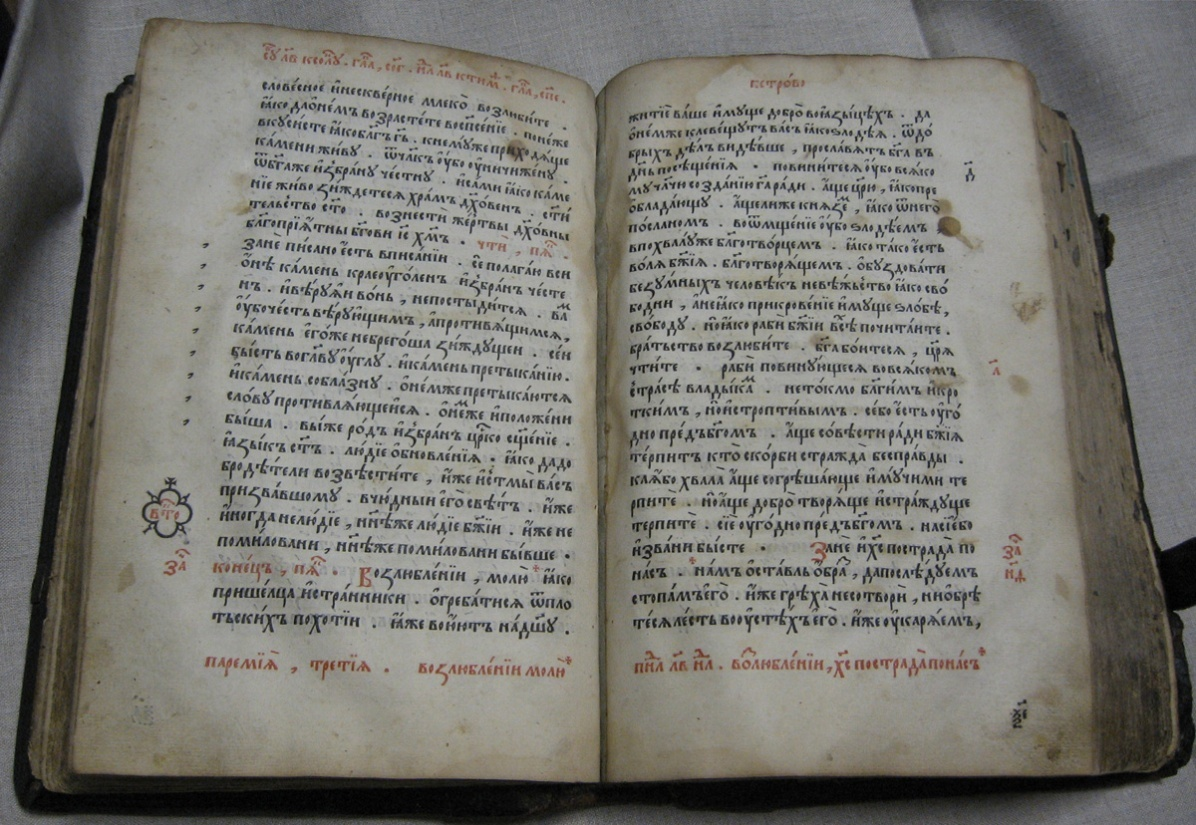 словесное инескверное млеко возлюбите .
ꙗко длонемъ возрастете воспсенїе . понеже
вкусисте ꙗкоблгъ гь . кнемуже приходѧще
камени живу . ѿчл҃къ оубо оуничижену .
ѿбг҃аже избрану честну . исами ꙗко каме
нїе живо зиждетеся храмъ дх҃овенъ . ст҃и
тельство ст҃о . возвести жертвы дх҃овны
благоприꙗтны бг҃ови іс҃ хм҃ъ .
зане писано есть вписанїи . се полагаю вси
оне камень краеоуголенъ избранъ честе
нъ . ивѣруꙗи вонь , непостыдится .
оубочесть вѣрующимъ , апротивꙗщимся ,
камень егоже небрегоша зиждущеи . сеи
бысть воглаву оуглу . икамень претыканїю .
икамень соблазну . онемже претыкаются
слову противлꙗющеися . онеже иположени
быша . выже родъ избранъ цр҃ко сщ҃енїе .
ꙗзыкъ ст҃ъ . людїе обновленїꙗ . ꙗко дадо
бродѣтели возвѣстите , иже ис тмы васъ
призвавшому . вчюдныи его свѣтъ . иже
иногда нелюдїе , нн҃ѣже людїе бж҃їи . иже не
помиловани , нн҃ѣже помиловани бывше .
вто
за҃
конецъ , Возлюбленїи , молю ꙗко
пришелца истранники . огребатися ѿпло
тьскихъ похотїи . ꙗже воюютъ надш҃у .
паремїꙗ , третїꙗ . возлюбленїи молю
петрово
житїе ваше имуще добро воꙗзыцѣхъ . да
онемже клевещутъ васъ ꙗко злодѣꙗ . ѿдо
брыхъ дѣлъ видѣвше , прославѧтъ бг҃а въ
дн҃ь посѣщенїꙗ . повинитеся оубо всѧко
му чл҃чю созданїю га҃ ради . аще цр҃ю , ꙗкопре
обладающу . ащелиже кнѧзе , ꙗко ѿнего
посланомъ . воѿмщенїе оубо злодѣемъ
впохвалуже благотворцемъ . ꙗко тако есть
волꙗ бж҃їꙗ . благотворꙗщемъ . обуздовати
безумныхъ человѣкъ невѣжьство ꙗко сво
бодни , анеꙗко прикровенїе имуще злобѣ ,
свободу . ноꙗко раби бж҃їи всѣ почитаите .
братьство возлюбите . бг҃а боитеся , цр҃ꙗ
чтите . раби повинующеся вовсѧкомъ
страсѣ владыкамъ . нетокмо благимъ икро
ткимъ , ноистроптивымъ . себо есть оуго
дно предъбг҃омъ . аще совѣсти ради бж҃їꙗ
терпитъ кто скорби стражда бесправды .
каꙗбо хвала аще согрѣшающе имучими те
рпите . ноаще добро творꙗще истраждуще
терпите . сїе оугодно предъбг҃омъ . насїебо
извани бысте . Зане их҃с пострада по
насъ . намъ оставль образ , дапослѣдуемъ
стопамъ его . иже грѣха несотвори , ниобрѣ
теся лесть вооустѣхъ его . иже оукарꙗемъ ,
за҃
возлюбленїи , хс҃ пострада понасъ